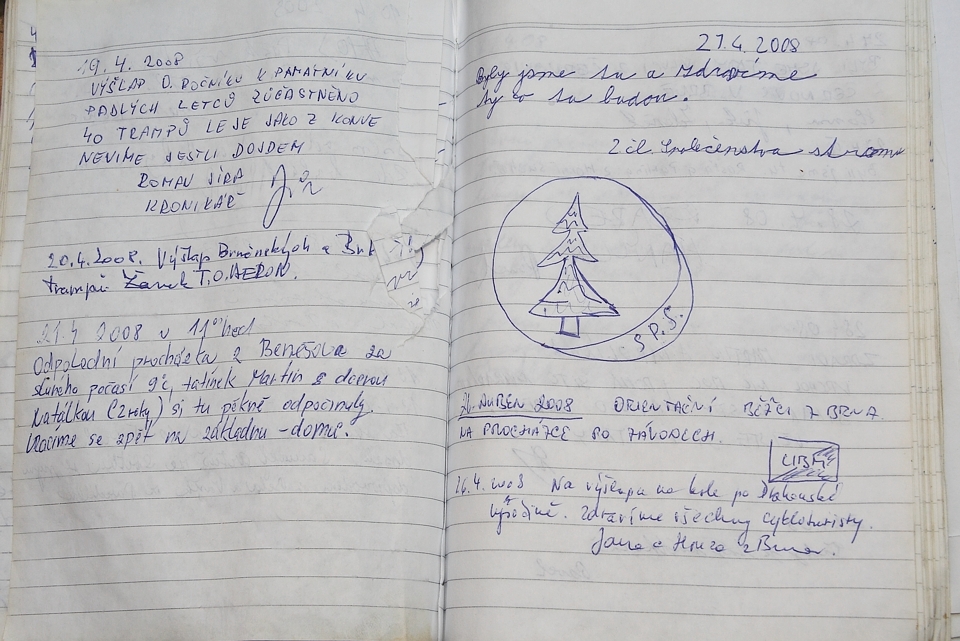 19.4. 2008
VÝŠLAP O. ROČNÍKU K PAMÁTNÍKU
PADLÝCH LETCŮ ZÚČASTNĚNO
40 TRAMPŮ LEJE JAKO Z KONVE
NEVÍME JESTLI DOJDEM
ROMAN JÍRA
KRONIKÁŘ
20.4.2008. Výšlap Brněnských a
trampů T.O.
21.4 2008 v 11 hod
Odpolední procházka z Benešova za
slunného počasí 9°C, tatínek Martin s dcerou
Natálkou (2 roky) si tu pěkně odpočinuly.
Vracíme se zpět na základnu - domů.
21.4. 2008
Byly jsme tu a zdravíme
ty co tu budou.
2 čl. Společenstva stromu
S P. S.
26. DUBEN 2008 ORIENTAČNÍ BĚŽCI Z BRNA
NA PROCHÁZCE PO ZÁVODECH.
26.4. 2008 Na výšlapu na kole po Drahanské
výsočině. Zdravíme všechny cykloturisty.
Jana a Honza z Brna.